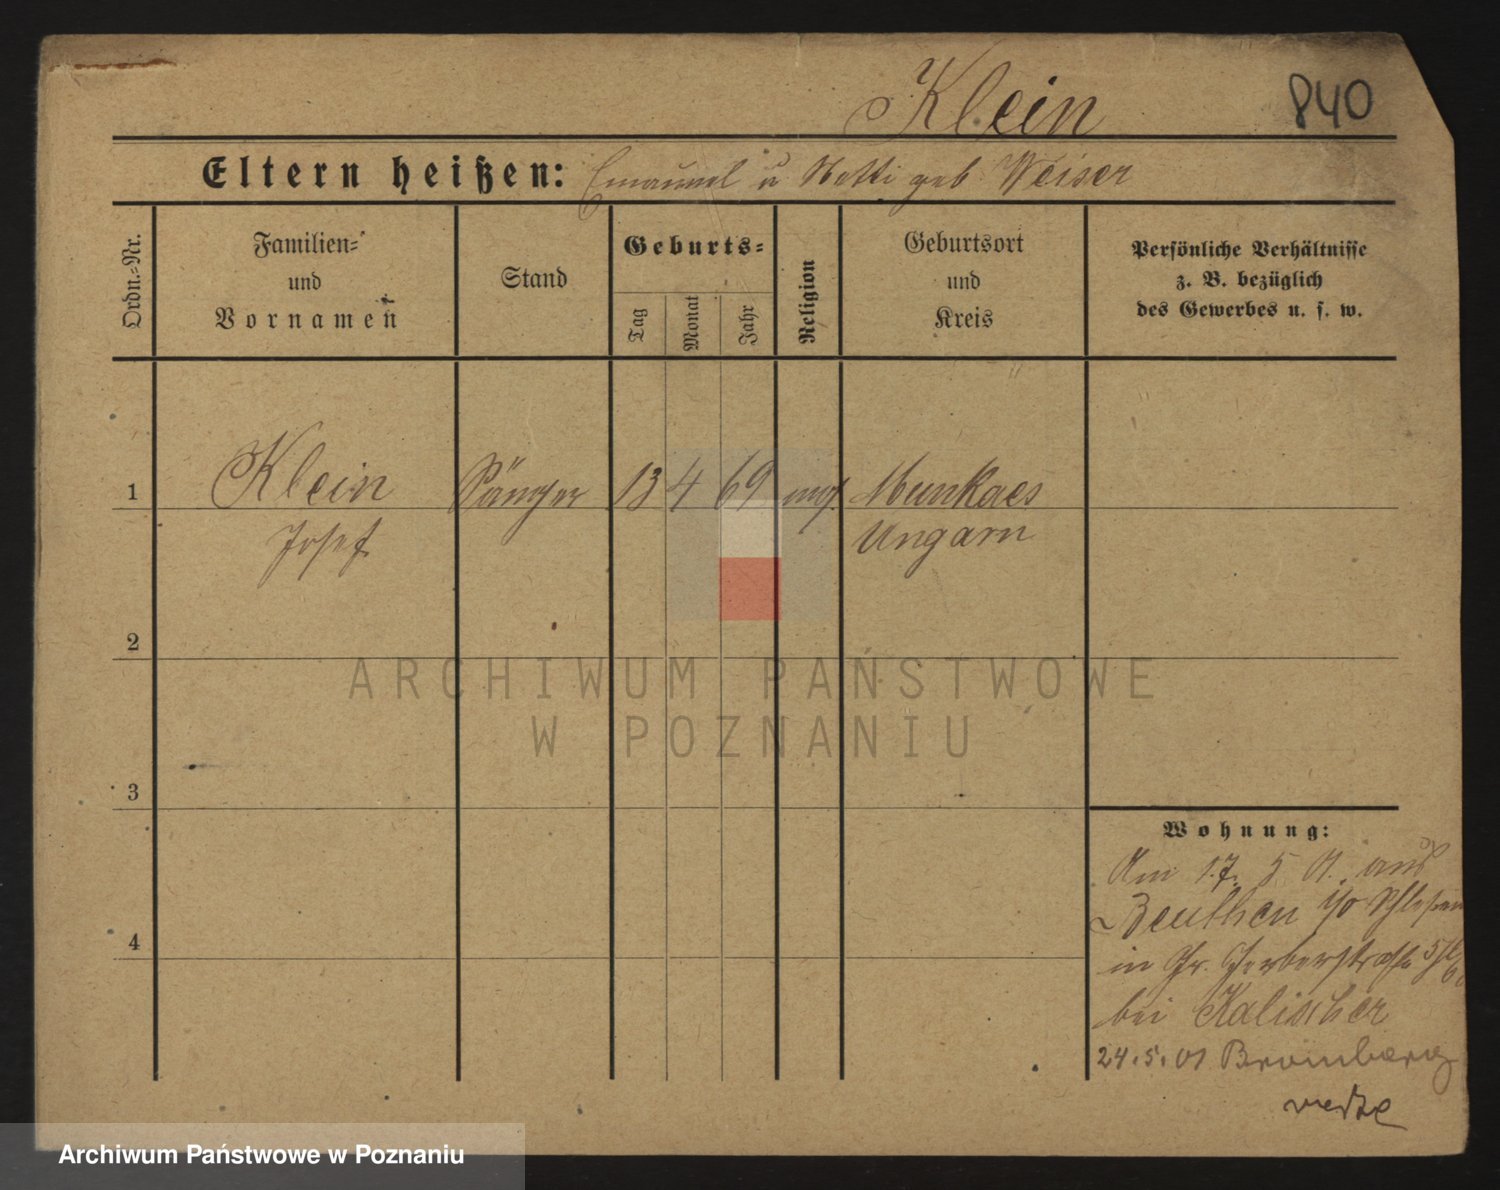 Klein
840
Eltern heißen: Emanuel u Netti geb Weiser
Ordn.-Nr.
Familien-
und
Vornamen
Stand
Geburts-
Tag
Monat
Jahr
Religion
Geburtsort
und
Kreis
Persönliche Verhältnisse
z. B. bezüglich
des Gewerbes u. s. w.
1
Klein Sänger 13 4 69 mos. Munkacs
Josef Ungarn
2
3
4
Wohnung:
Am 17. 5 01. aus
Beuthen i/o Schlesien
in Gr. Gerberstraße
bei Kalischer
24.5.01 Bromberg
ARCHIWUM PAŃSTWOWE
W POZNANIU
Archiwum Państwowe w Poznaniu